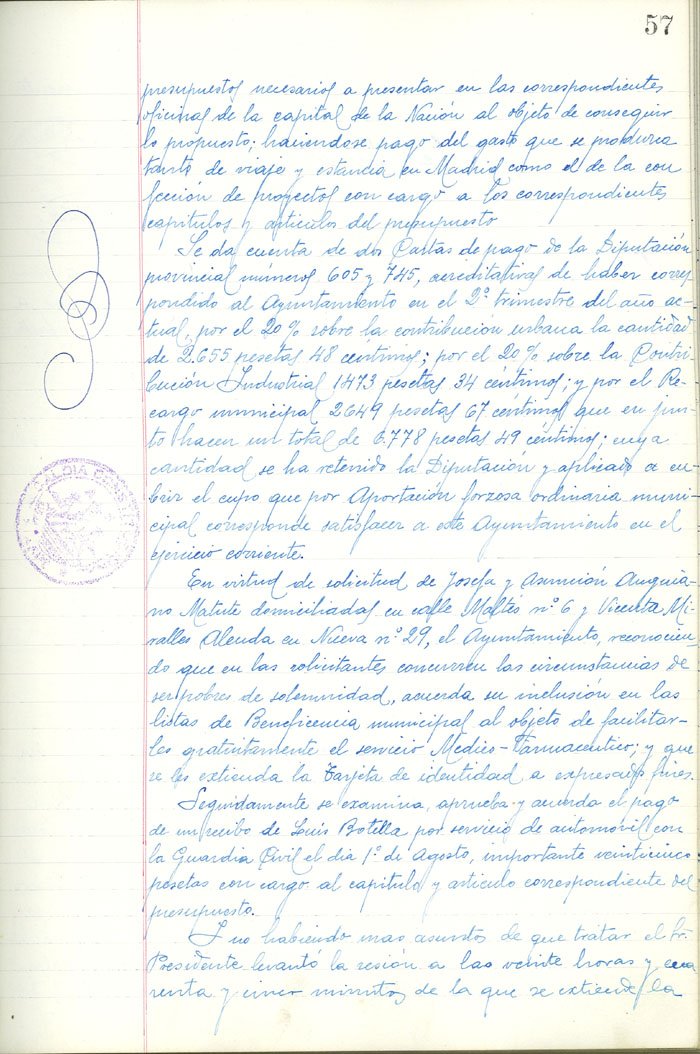 57
presupuestos necesarios a presentar en las correspondientes
oficinas de la capital de la Nación al objeto de conseguir
lo propuesto; haciendose pago del gasto que se produzca
tanto de viaje y estancia en Madrid como el de la con
fección de proyectos con cargo a los correspondientes
capitulos y articulos del presupuesto
Se da cuenta de dos Cartas de pago de la Diputación
provincial números 605 y 745, acreditativas de haber corres
pondido al Ayuntamiento en el 2º trimestre del año ac-
tual, por el 20% sobre la contribución urbana la cantidad
de 2.655 pesetas 48 céntimos; por el 20% sobre la Contri
bución Industrial 1473 pesetas 34 céntimos; y por el Re-
cargo municipal 2649 pesetas 67 céntimos que en jun-
to hacen un total de 6.778 pesetas 49 céntimos; cuya
cantidad se ha retenido la Diputación y aplicado a cu-
brir el cupo que por Aportación forzosa ordinaria muni-
cipal corresponde satisfacer a este Ayuntamiento en el
ejercicio corriente.
En virtud de solicitud de Josefa y Asunción Anguia-
no Matute domiciliadas en calle Maltés nº 6 y Vicenta Mi-
ralles Alenda en Nueva nº 29, el Ayuntamiento, reconocien-
do que en las solicitantes concurren las circunstancias de
ser pobres de solemnidad, acuerda su inclusión en las
listas de Beneficencia municipal al objeto de facilitar-
les gratuitamente el servicio Medico-Farmaceutico; y que
se les extienda la Tarjeta de identidad a expresados fines.
Seguidamente se examina, aprueba y acuerda el pago
de un recibo de Luis Botella por servicio de automóvil con
la Guardia Civil el dia 1º de Agosto, importante veinticinco
pesetas con cargo al capitulo y articulo correspondiente del
presupuesto.
Y no habiendo mas asuntos de que tratar el Sr.
Presidente levantó la sesión a las veinte horas y cua
renta y cinco minutos de la que se extiende la